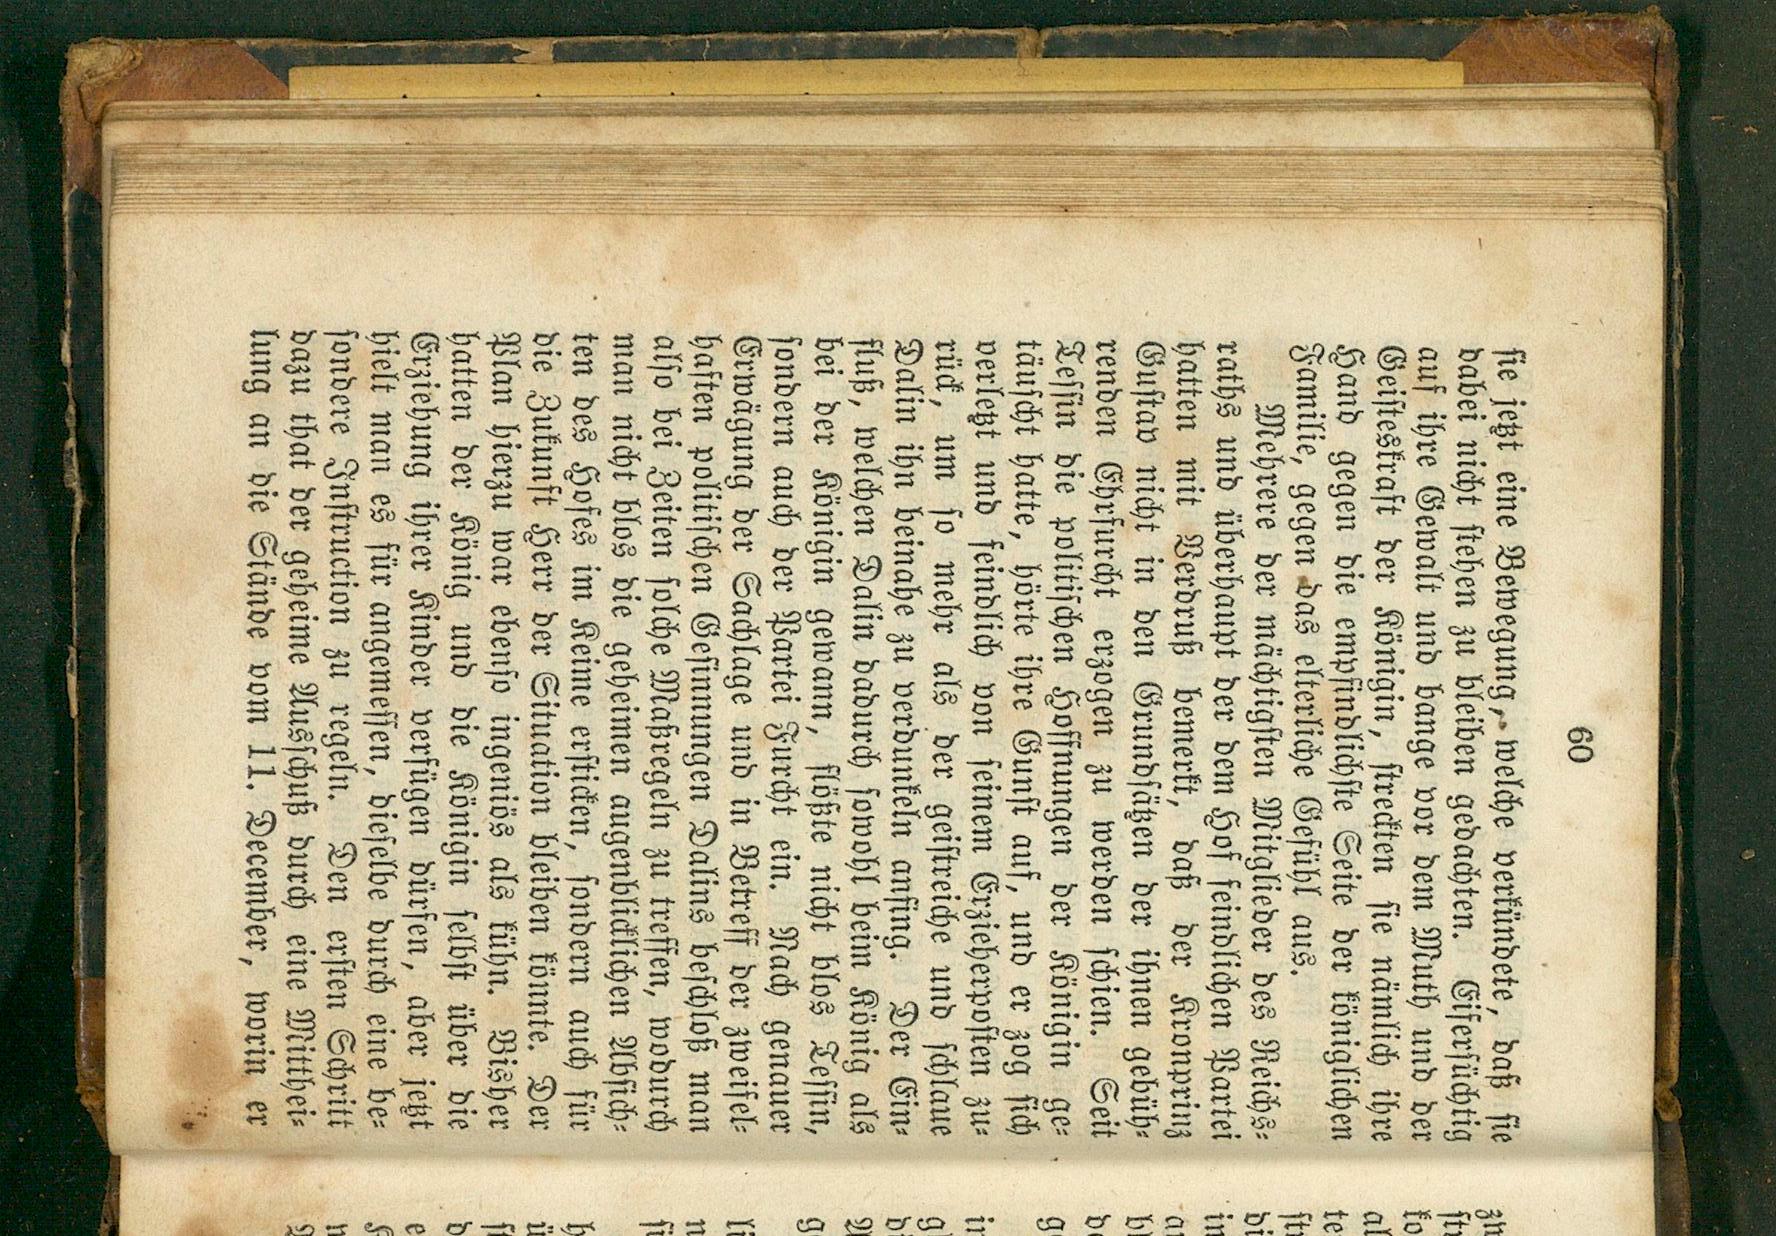 60
ſie jetzt eine Bewegung, welche verkündete, daß ſie
dabei nicht ſtehen zu bleiben gedachten. Eiferſüchtig
auf ihre Gewalt und bange vor dem Muth und der
Geiſteskraft der Königin, ſtreckten ſie nämlich ihre
Hand gegen die empfindlichſte Seite der königlichen
Familie, gegen das elterliche Gefühl aus.
Mehrere der mächtigſten Mitglieder des Reichs-
raths und überhaupt der dem Hof feindlichen Partei
hatten mit Verdruß bemerkt, daß der Kronprinz
Guſtav nicht in den Grundſätzen der ihnen gebüh-
renden Ehrfurcht erzogen zu werden ſchien. Seit
Teſſin die politiſchen Hoffnungen der Königin ge-
täuſcht hatte, hörte ihre Gunſt auf, und er zog ſich
verletzt und feindlich von ſeinem Erzieherpoſten zu-
rück, um ſo mehr als der geiſtreiche und ſchlaue
Dalin ihn beinahe zu verdunkeln anfing. Der Ein-
fluß, welchen Dalin dadurch ſowohl beim König als
bei der Königin gewann, flößte nicht blos Teſſin,
ſondern auch der Partei Furcht ein. Nach genauer
Erwägung der Sachlage und in Betreff der zweifel-
haften politiſchen Geſinnungen Dalins beſchloß man
alſo bei Zeiten ſolche Maßregeln zu treffen, wodurch
man nicht blos die geheimen augenblicklichen Abſich-
ten des Hofes im Keime erſticken, ſondern auch für
die Zukunft Herr der Situation bleiben könnte. Der
Plan hierzu war ebenſo ingeniös als kühn. Bisher
hatten der König und die Königin ſelbſt über die
Erziehung ihrer Kinder verfügen dürfen, aber jetzt
hielt man es für angemeſſen, dieſelbe durch eine be-
ſondere Inſtruction zu regeln. Den erſten Schritt
dazu that der geheime Ausſchuß durch eine Mitthei-
lung an die Stände vom 11. December, worin er